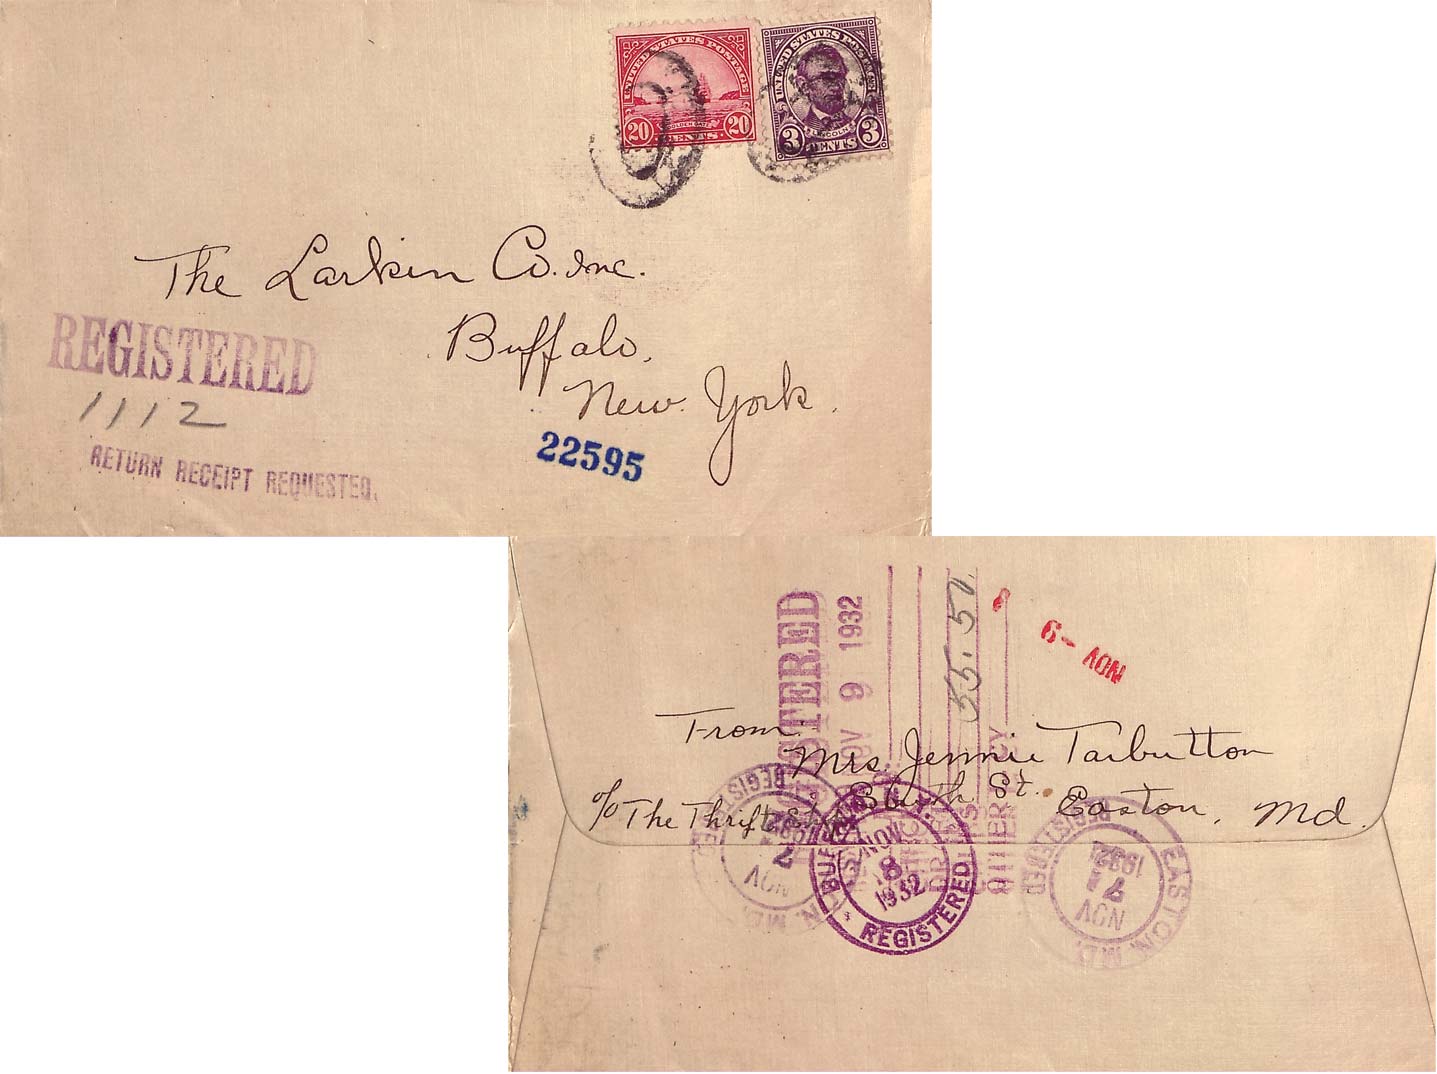 UNITED STATES POSTAGE
GOLDEN GATE
20 CENTS 20
UNITED STATES POSTAGE
LINCOLN
3 CENTS 3
The Larkin Co. Inc.
Buffalo,
New York.
REGISTERED
1112
RETURN RECEIPT REQUESTED.
22595
REGISTERED
NOV 9 1932
55.50
NOV -9
From:
Mrs. Jennie Tarbutton
South St.
c/o The Thrift Shop
Easton, Md.
REGISTERED
NOV
7
1932
N. MD.
BUFFALO, N.Y.
NOV
8
1932
REGISTERED
EASTON, MD.
NOV
7
1932
REGISTERED